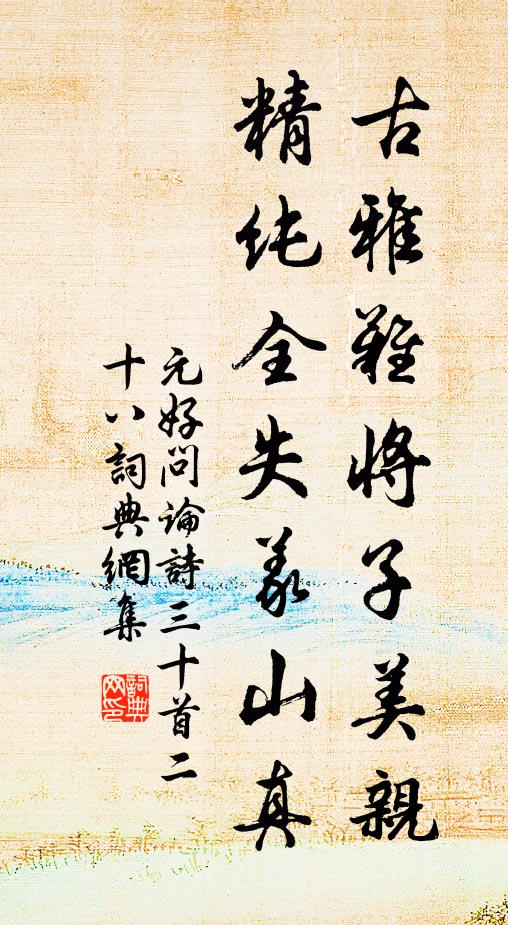 古雅難將子美親
精纯全失義山真
元好问論詩三十首二
十八詞典網集
詞典
网印